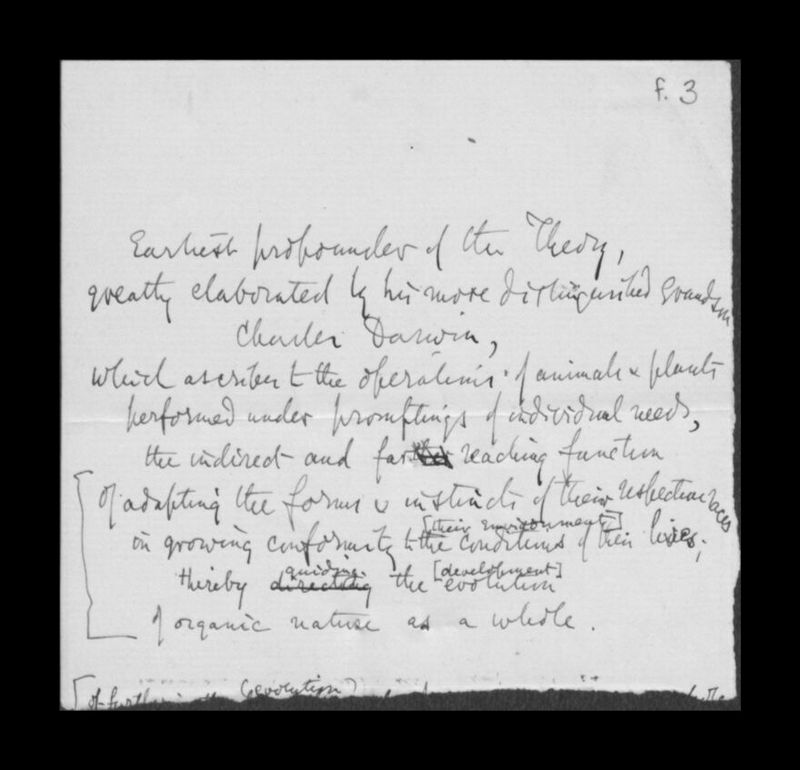 f. 3
Earliest propounder of the Theory,
greatly elaborated by his more distinguished Grandson
Charles Darwin,
which ascribes to the operations of animals & plants
performed under promptings of individual needs,
the indirect and far reaching function
of adapting the forms & instincts of their respective races
[their environment]
in growing conformity to the conditions of their lives;
guiding [development]
thereby directing the evolution
of organic nature as a whole.
[of furth the (evolution)